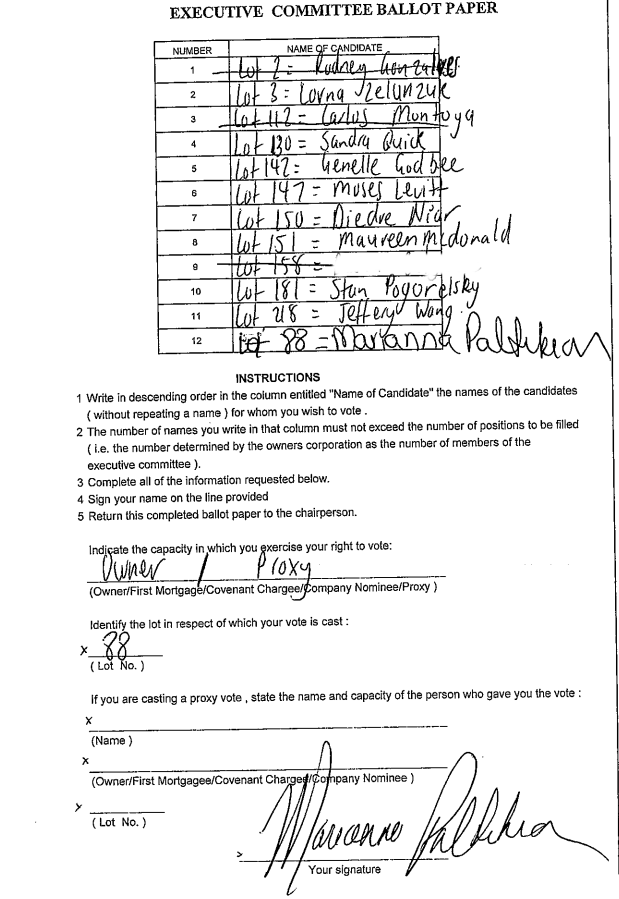 EXECUTIVE COMMITTEE BALLOT PAPER
NUMBER NAME OF CANDIDATE
1 Lot 2 = Rodney Gonzalves
2 Lot 3 = Lorna Zelunzuk
3 Lot 112 = Carlos Montoya
4 Lot 130 = Sandra Quick
5 Lot 142 = Genelle Godbee
6 Lot 147 = Moses Levitt
7 Lot 150 = Diedre Niar
8 Lot 151 = Maureen Mcdonald
9 Lot 158 =
10 Lot 181 = Stan Pogorelsky
11 Lot 218 = Jeffery Wong
12 Lot 88 = Maryanna Paltikian
INSTRUCTIONS
1 Write in descending order in the column entitled "Name of Candidate" the names of the candidates
( without repeating a name ) for whom you wish to vote .
2 The number of names you write in that column must not exceed the number of positions to be filled
( i.e. the number determined by the owners corporation as the number of members of the
executive committee ).
3 Complete all of the information requested below.
4 Sign your name on the line provided
5 Return this completed ballot paper to the chairperson.
Indicate the capacity in which you exercise your right to vote:
Owner / Proxy
(Owner/First Mortgage/Covenant Chargee/Company Nominee/Proxy )
Identify the lot in respect of which your vote is cast :
x 88
( Lot No. )
If you are casting a proxy vote , state the name and capacity of the person who gave you the vote :
x
(Name )
x
(Owner/First Mortgagee/Covenant Charged/Company Nominee )
x
( Lot No. )
Your signature